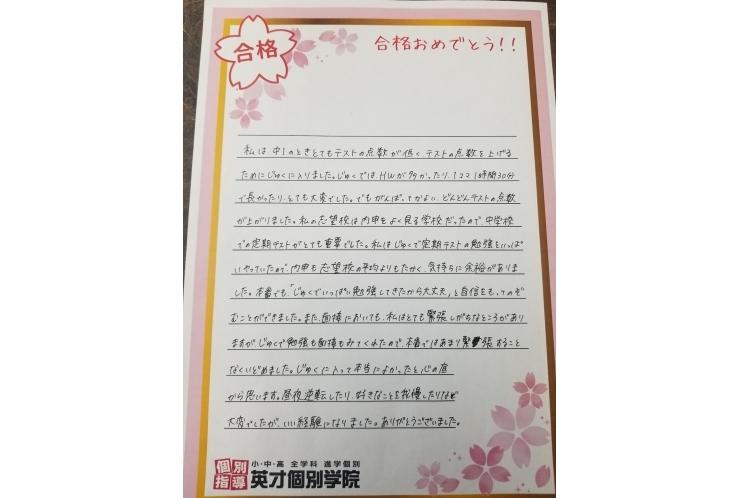 合格
合格おめでとう!!
私は中1のときとてもテストの点数が低く、テストの点数を上げる
ためにじゅくに入りました。じゅくでは、HWが多かったり、1コマ1時間30分
で長かったり、とても大変でした。でもがんばってかよい、どんどんテストの点数
が上がりました。私の志望校は内申をよく見る学校だったので、中学校
での定期テストがとても重要でした。私はじゅくで定期テストの勉強をいっぱ
いやっていたので、内申も志望校の平均よりもたかく、気持ちに余裕がありま
した。本番でも、「じゅくでいっぱい勉強してきたから大丈夫」と自信をもってのぞ
むことができました。また、面接においても、私はとても緊張しがちなところがあり
ますが、じゅくで勉強も面接もみてくれたので、本番ではあまり緊張すること
なくいどめました。じゅくに入って本当によかったと心の底
から思います。昼夜逆転したり、好きなことを我慢したりなど
大変でしたが、いい経験になりました。ありがとうございました。
個別指導
小・中・高 全学科 進学個別
英才個別学院